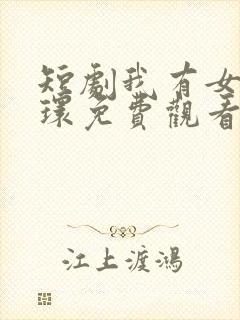 短劇我有女
環免費觀看
江上渡鴻